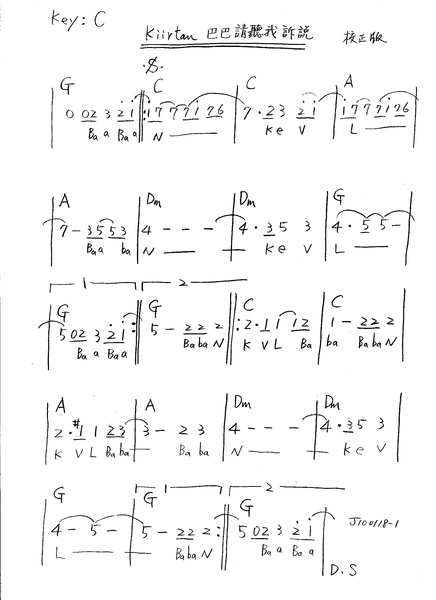 Key: C
Kiirtan 巴巴請聽我訴說 校正版
.S.
G C C A
0 02 3 2 1 : 1 7 7 7 1 7 6 7 · 2 3 2 1 1 7 7 7 1 7 6
Ba a Ba a N —— Ke V L ——
A Dm Dm G
7 - 3 5 5 3 4 - - - 4 · 3 5 3 4 · 5 5 -
Ba a ba N —— — Ke V L ——
1 2
G G C C
5 02 3 2 1 : 5 - 2 2 2 : 2 · 1 1 1 2 1 - 2 2 2
Ba a Ba a Ba ba N K V L Ba ba Ba ba N
A A Dm Dm
2 · #1 1 2 3 3 - 2 3 4 - - - 4 · 3 5 3
K V L Ba ba — Ba ba N —— — Ke V
1 2
G G G
4 - 5 - 5 - 2 2 2 : 5 02 3 2 1 J100118-1
L —— — Ba ba N Ba a Ba a
D.S